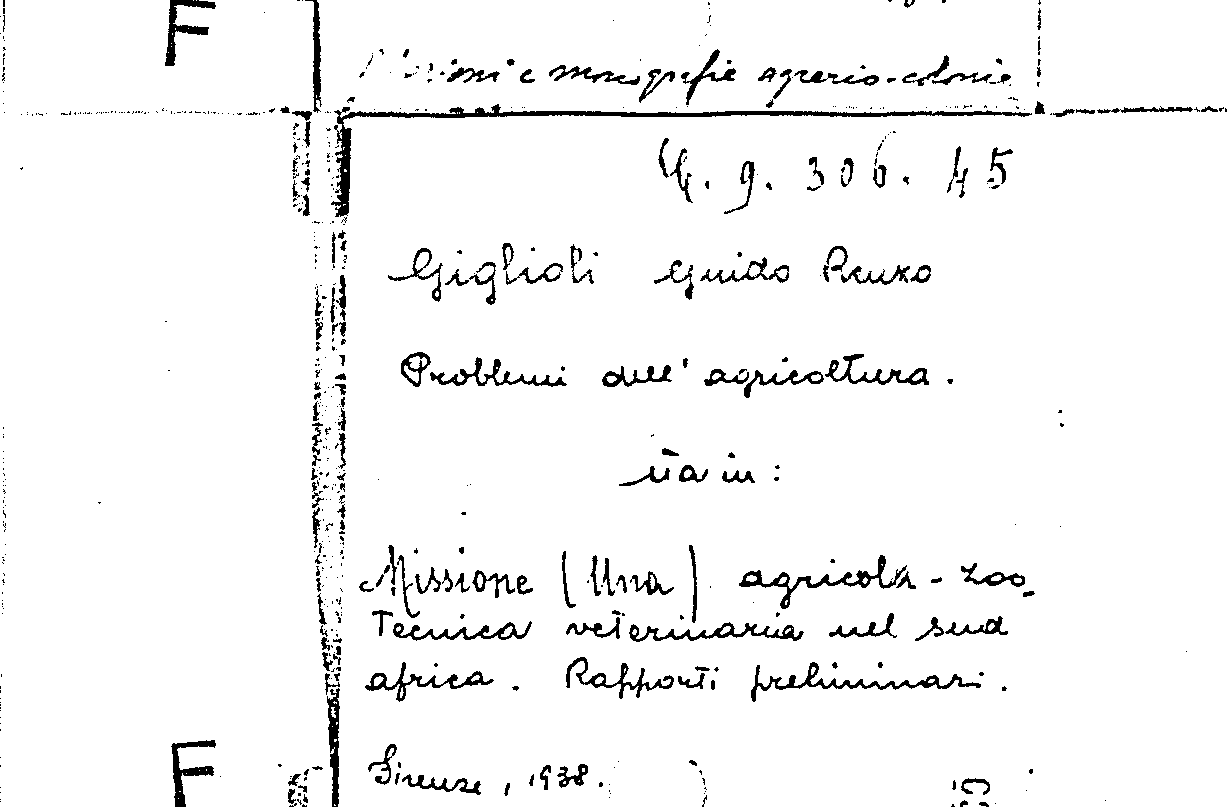 F
e monografie agrario-colonie
4. 9. 306. 45
Giglioli Guido Renzo
Problemi dell' agricoltura.
sta in:
Missione (Una) agricola - zoo-
tecnica veterinaria nel sud
africa. Rapporti preliminari.
F
Firenze, 1938.